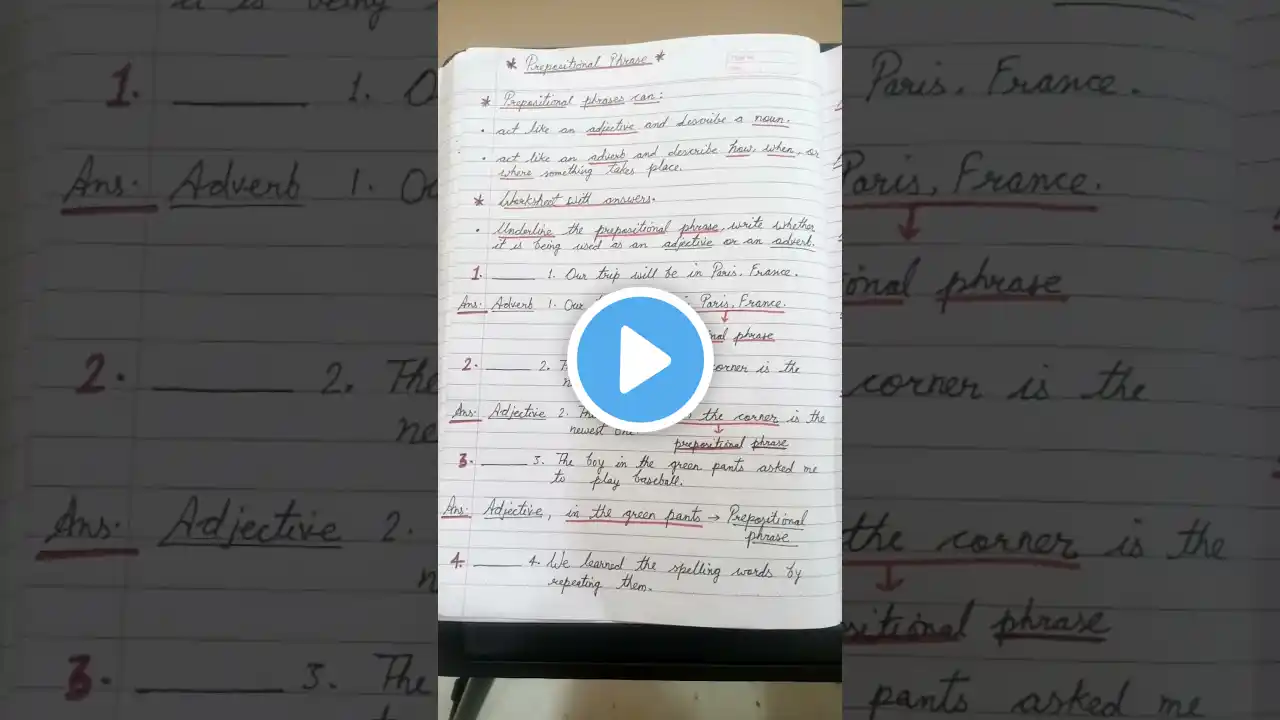 * Prepositional Phrase *
* Prepositional phrases can:
• act like an adjective and describe a noun.
• act like an adverb and describe how, when, or
where something takes place.
* Worksheet with answers.
• Underline the prepositional phrase, write whether
it is being used as an adjective or an adverb.
1. ______ 1. Our trip will be in Paris, France.
Ans: Adverb 1. Our Paris, France.
phrase
2. ______ 2. corner is the
Ans: Adjective 2. the corner is the
newest one.
prepositional phrase
3. ______ 3. The boy in the green pants asked me
to play baseball.
Ans: Adjective, in the green pants → Prepositional
phrase
4. ______ 4. We learned the spelling words by
repeating them.